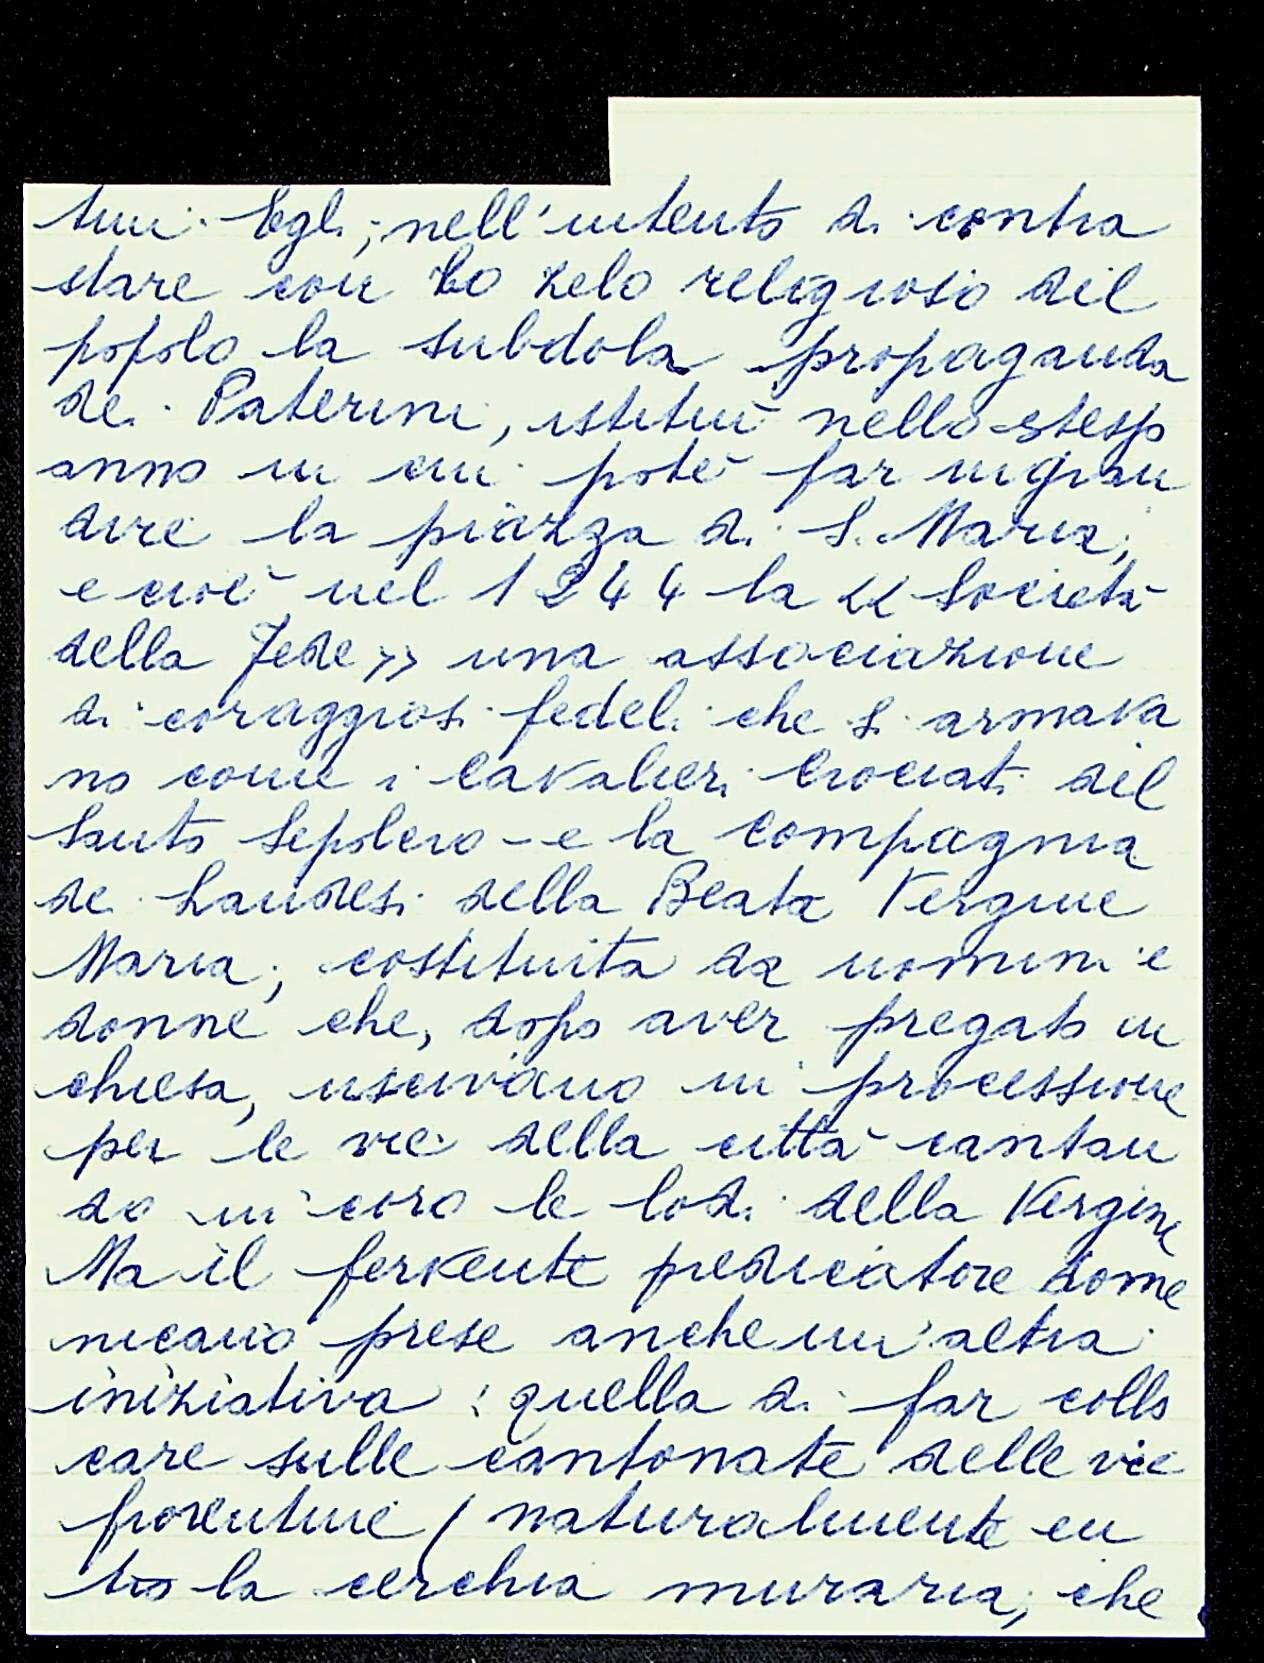 tini. Egli, nell'intento di contra
stare con lo zelo religioso del
popolo la subdola propaganda
dei Paterini, istituì nello stesso
anno in cui potè far ingran
dire la piazza di S. Maria,
e cioè nel 1244 la « Società
della Fede » una associazione
di coraggiosi fedeli che si armava
no come i Cavalieri Crociati del
Santo Sepolcro - e la compagnia
dei Laudesi della Beata Vergine
Maria, costituita da uomini e
donne che, dopo aver pregato in
chiesa, uscivano in processione
per le vie della città cantan
do in coro le lodi della Vergine
Ma il fervente predicatore dome
nicano prese anche un'altra
iniziativa: quella di far collo
care sulle cantonate delle vie
fiorentine (naturalmente en
tro la cerchia muraria, che